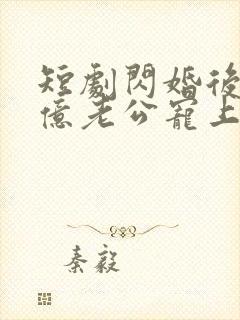 短劇閃婚後
億老公寵上
秦毅